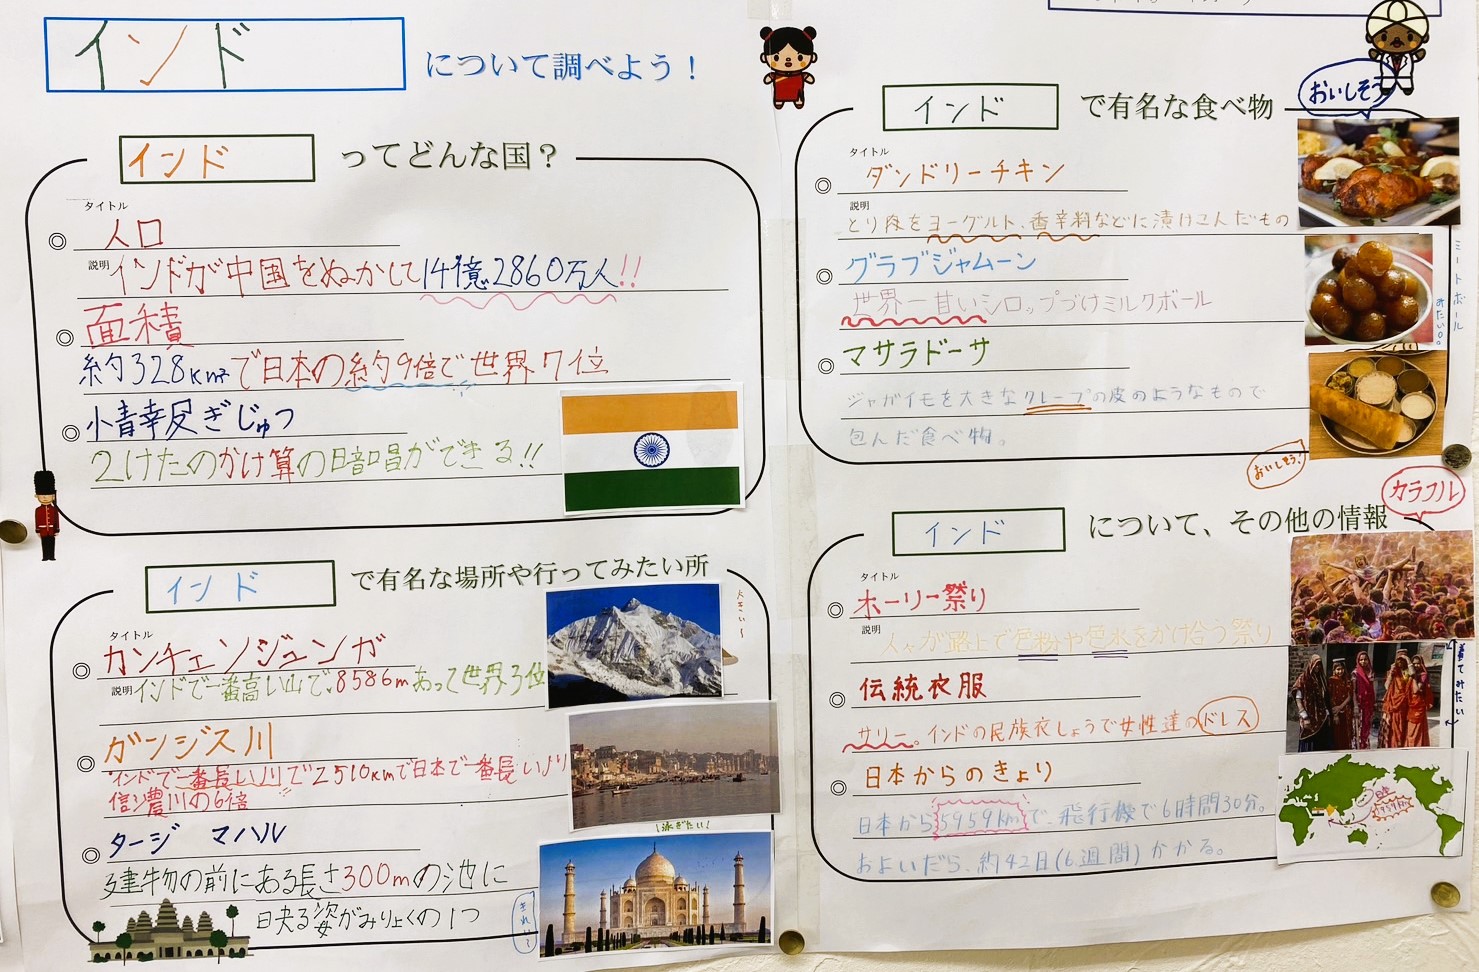 インド について調べよう！
インド ってどんな国？
タイトル
◎ 人口
説明 インドが中国をぬかして14億2860万人!!
◎ 面積
約328km²で日本の約9倍で世界7位
◎ 小青幸尻ぎじゅつ
2けたのかけ算の暗唱ができる!!
インド で有名な場所や行ってみたい所
タイトル
◎ カンチェンジュンガ
説明 インドで一番高い山で、8586mあって世界3位
大きい〜
◎ ガンジス川
インドで一番長い川で2510kmで日本で一番長いより
信濃川の6倍
泳ぎたい!
◎ タージ マハル
建物の前にある長さ300mの池に
映る姿がみりょくの1つ
きれい〜
インド で有名な食べ物
おいしそう
タイトル
◎ ダンドリーチキン
説明
とり肉をヨーグルト、香辛料などに漬けこんだもの
◎ グラブジャムーン
世界一甘いシロップづけミルクボール
ミートボール
みたい。。
◎ マサラドーサ
ジャガイモを大きなクレープの皮のようなもので
包んだ食べ物。
おいしそう!
インド について、その他の情報
カラフル
タイトル
◎ ホーリー祭り
説明
人々が路上で色粉や色水をかけ合う祭り
◎ 伝統衣服
サリー。インドの民族衣しょうで女性達のドレス
着てみたい
◎ 日本からのきょり
日本から5959kmで、飛行機で6時間30分。
およいだら、約42日(6週間)かかる。
日本
5959km